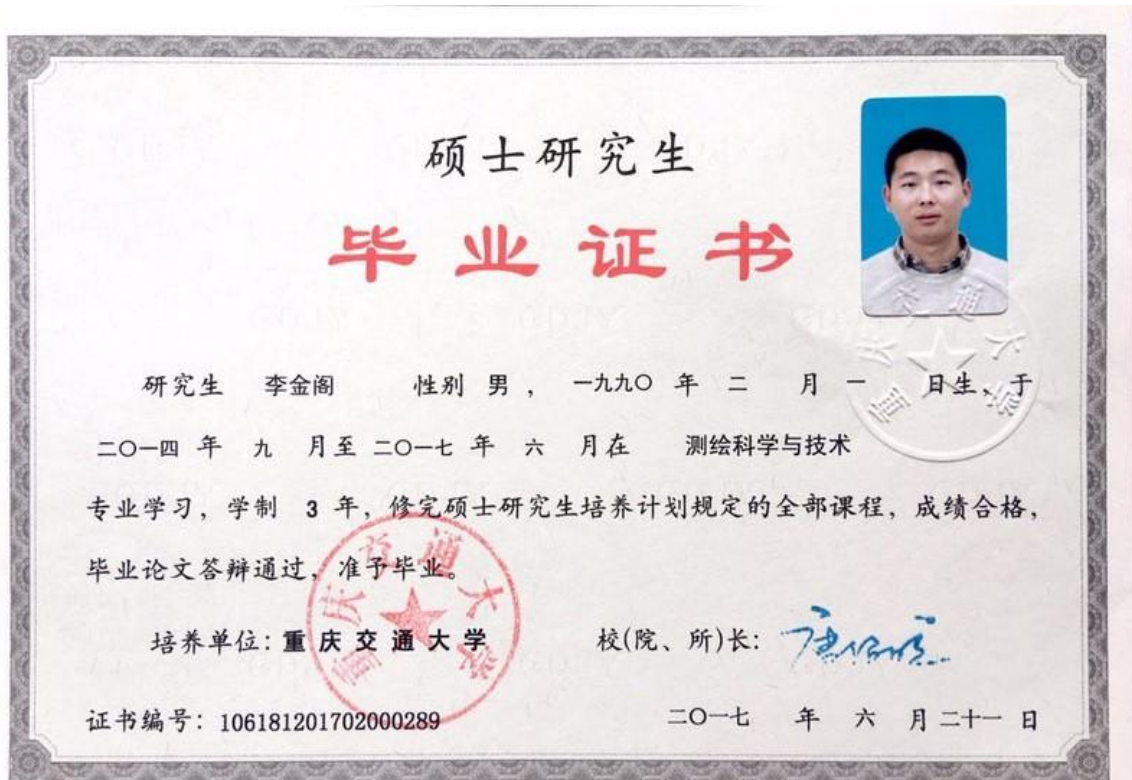 硕士研究生
毕业证书
研究生 李金阁 性别 男，一九九〇 年 二 月 一 日生，于
二〇一四 年 九 月至 二〇一七 年 六 月在 测绘科学与技术
专业学习，学制 3 年，修完硕士研究生培养计划规定的全部课程，成绩合格，
毕业论文答辩通过，准予毕业。
培养单位：重庆交通大学 校(院、所)长：
证书编号：106181201702000289 二〇一七 年 六 月 二十一 日
重庆交通大学
重庆交通大学